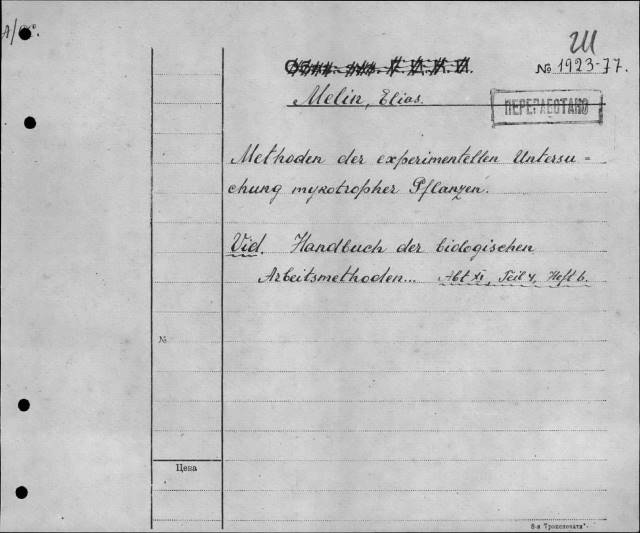 Ш
№ 1923-77.
Melin, Elias.
ПЕРЕРАБОТАНО
Methoden der experimentellen Untersu=
chung mykotropher Pflanzen.
Vid. Handbuch der biologischen
Arbeitsmethoden... Abt XI, Teil 4, Heft 6.
№
Цена